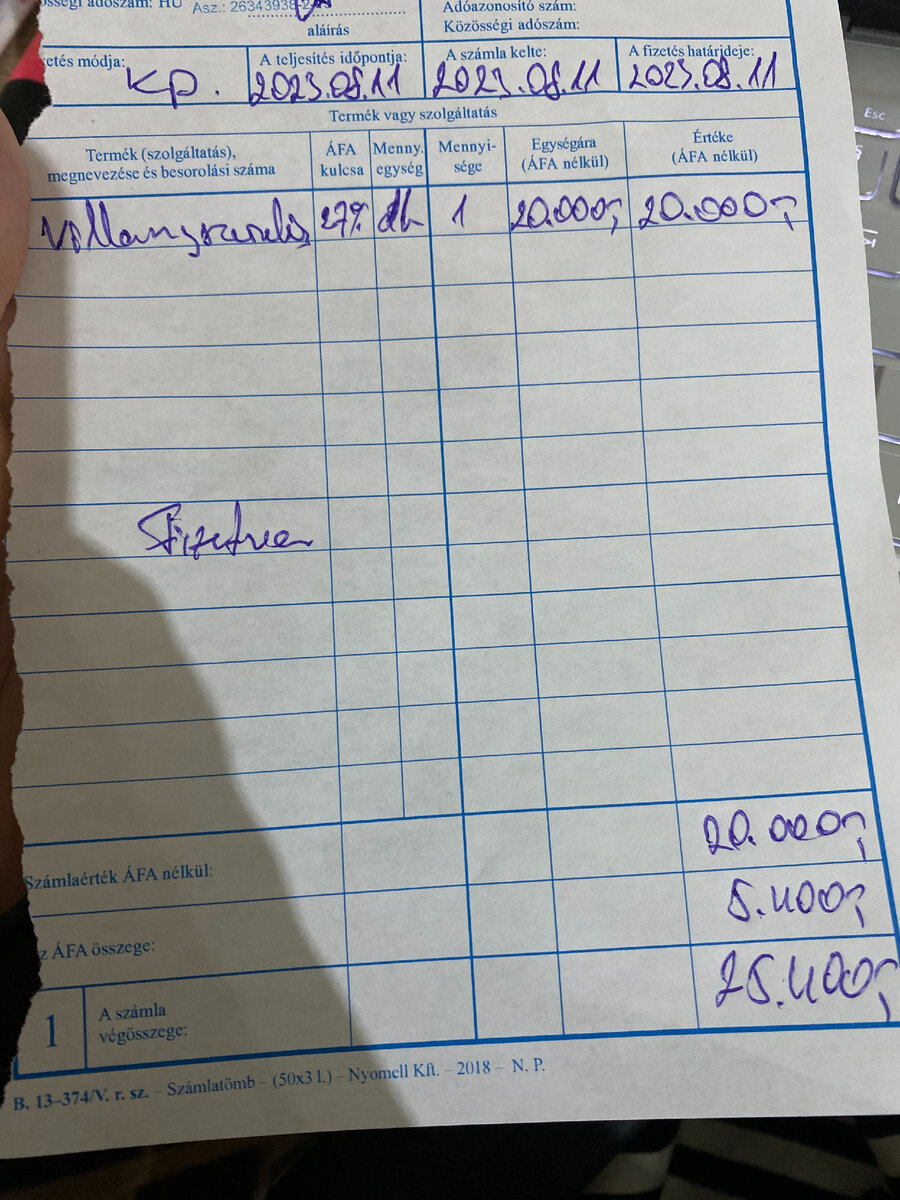 össégi adószám: HU Asz.: 26343938-2
aláírás
Adóazonosító szám:
Közösségi adószám:
etés módja: A teljesítés időpontja: A számla kelte: A fizetés határideje:
kp. 2023.08.11 2023.08.11 2023.08.11
Termék vagy szolgáltatás
Termék (szolgáltatás), megnevezése és besorolási száma ÁFA kulcsa Menny. egység Mennyi-sége Egységára (ÁFA nélkül) Értéke (ÁFA nélkül)
Villanyszerelés 27% db 1 20.000,- 20.000,-
Fizetve
Számlaérték ÁFA nélkül: 20.000,-
z ÁFA összege: 5.400,-
1 A számla végösszege: 25.400,-
B. 13–374/V. r. sz. – Számlatömb – (50x3 l.) – Nyomell Kft. – 2018 – N. P.
Esc